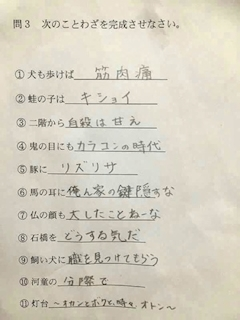 問3 次のことわざを完成させなさい。
①犬も歩けば 筋肉痛
②蛙の子は キショイ
③二階から 自殺は甘え
④鬼の目にも カラコンの時代
⑤豚に リズリサ
⑥馬の耳に 俺ん家の鍵隠すな
⑦仏の顔も 大したことねーな
⑧石橋を どうする気だ
⑨飼い犬に 職を見つけてもらう
⑩河童の 分際で
⑪灯台 〜オカンとボクと、時々オトン〜